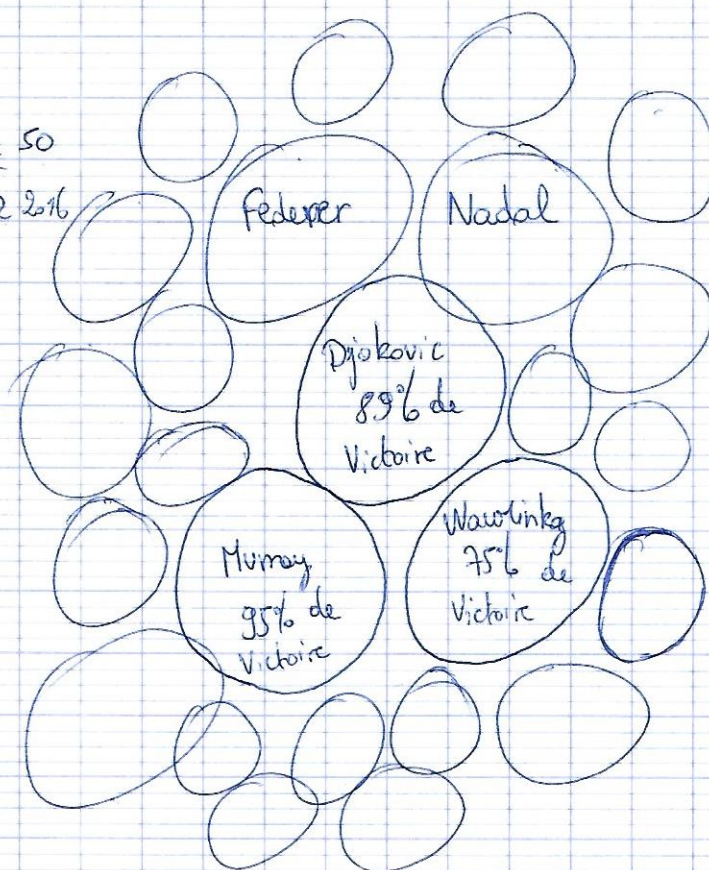 50
2016
Federer
Nadal
Djokovic
89% de
Victoire
Murray
95% de
Victoire
Wawrinka
75% de
Victoire